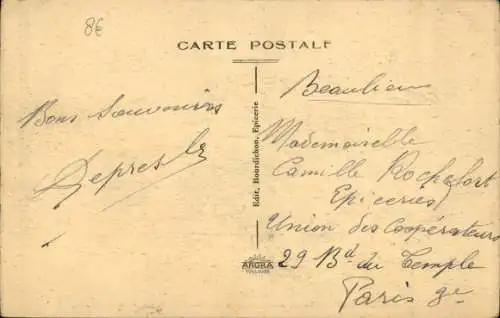 8€
CARTE POSTALE
Bons Souvenirs
Edit. Bourdichon, Epicerie
Beaulieu
Mademoiselle
Camille Rochefort
Epiceries
Union des Coopérateurs
29 Bd du Temple
Paris 9e
ARGRA